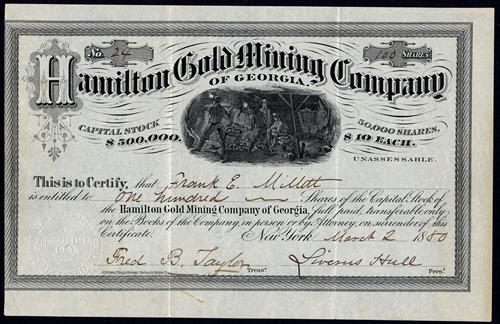 No. 24
100 SHARES
Hamilton Gold Mining Company
OF GEORGIA.
CAPITAL STOCK
$500,000.
50,000 SHARES,
$10 EACH.
UNASSESSABLE.
This is to Certify, that Frank E. Millott
is entitled to One hundred Shares of the Capital Stock of
the Hamilton Gold Mining Company of Georgia, full paid, transferable only
on the Books of the Company, in person or by Attorney, on surrender of this
Certificate. New York March 2 1880
Fred B. Taylor Treas. Liverus Hull Prest.